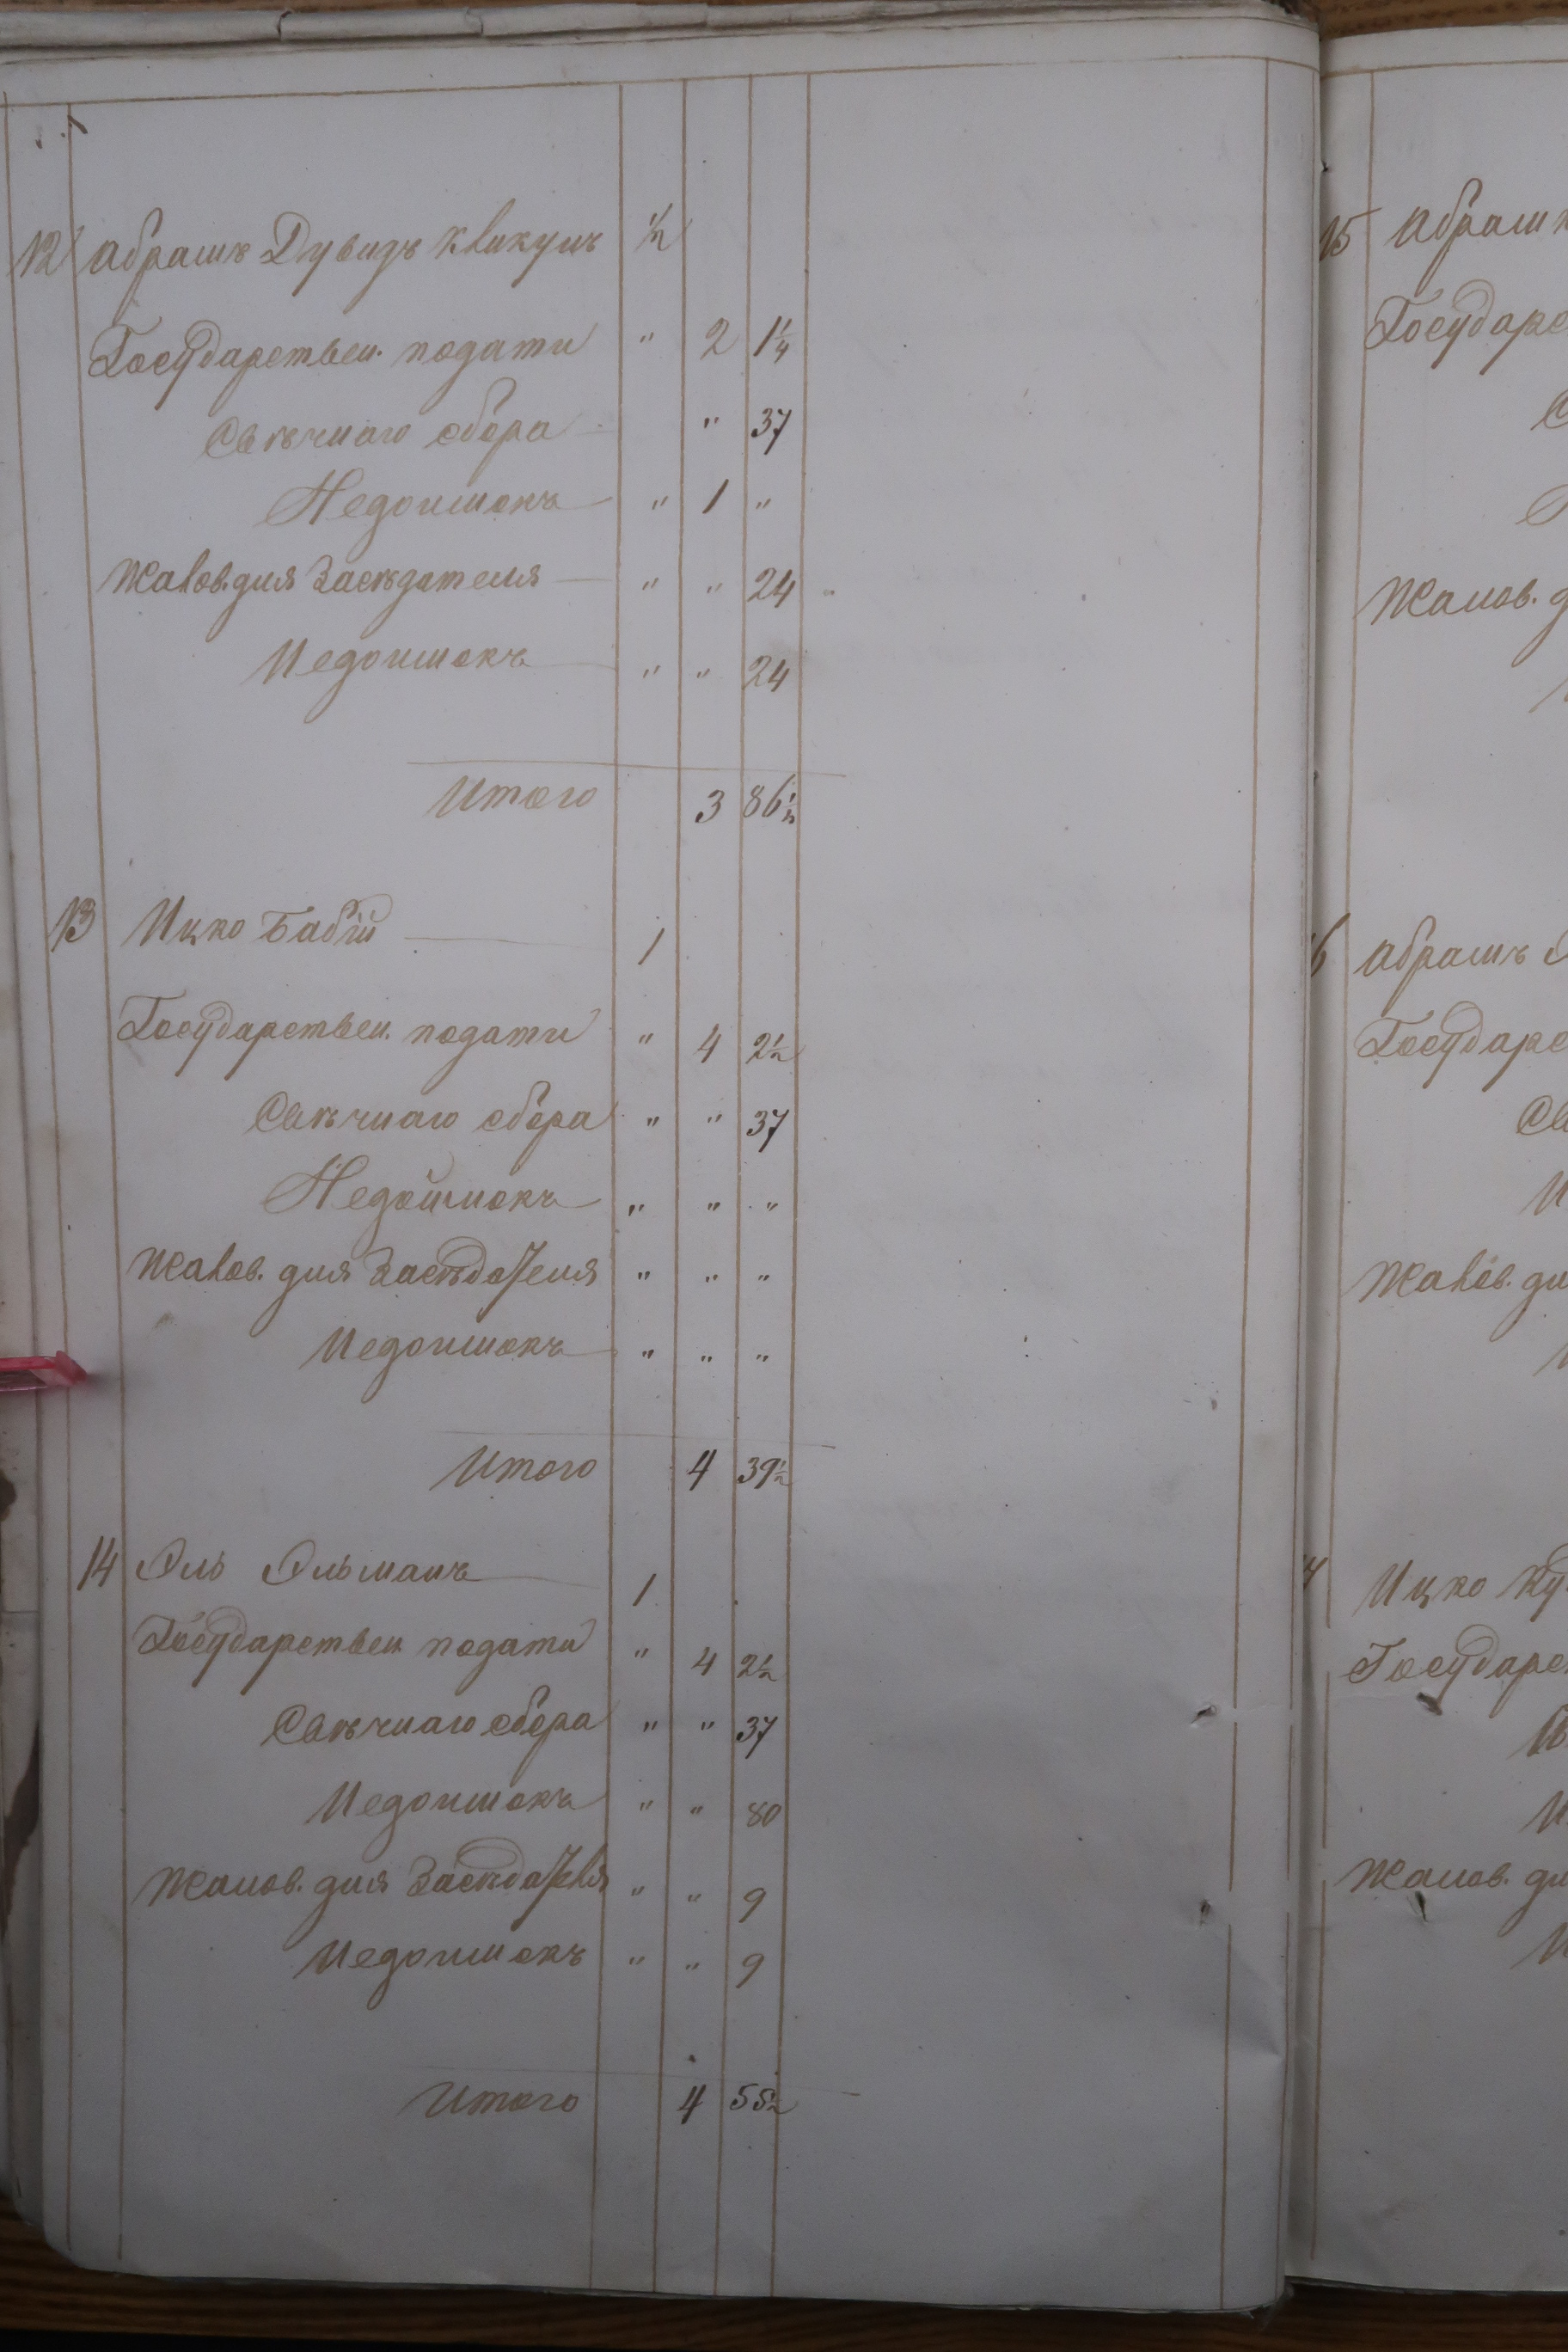 12 Абрамъ Дувидъ Кликунъ ½
Государствен. подати " 2 1¼
Свѣчнаго сбора " 37
Недоимокъ " 1 "
Жалов. для Засѣдателя " " 24
Недоимокъ " " 24
Итого 3 86½
13 Ицко Бабій 1
Государствен. подати " 4 2½
Свѣчнаго сбора " " 37
Недоимокъ " " "
Жалов. для Засѣдателя " " "
Недоимокъ " " "
Итого 4 39½
14 Эль Эльманъ 1
Государствен подати " 4 2½
Свѣчнаго сбора " " 37
Недоимокъ " " 80
Жалов. для Засѣдателя " " 9
Недоимокъ " " 9
Итого 4 55½
15 Абрам
Государс
Жалов.
Абрамъ
Государс
Св
Жалов. дл
Ицко Ку
Государс
Жалов. дл